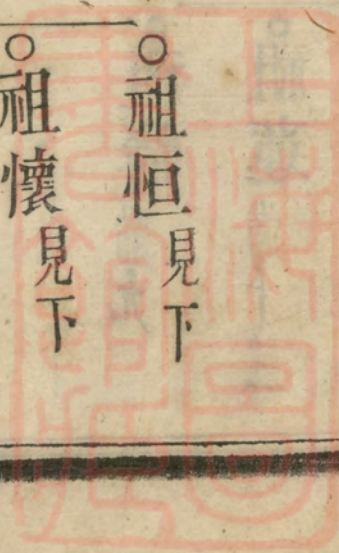 ○祖恒見下
○祖懷見下